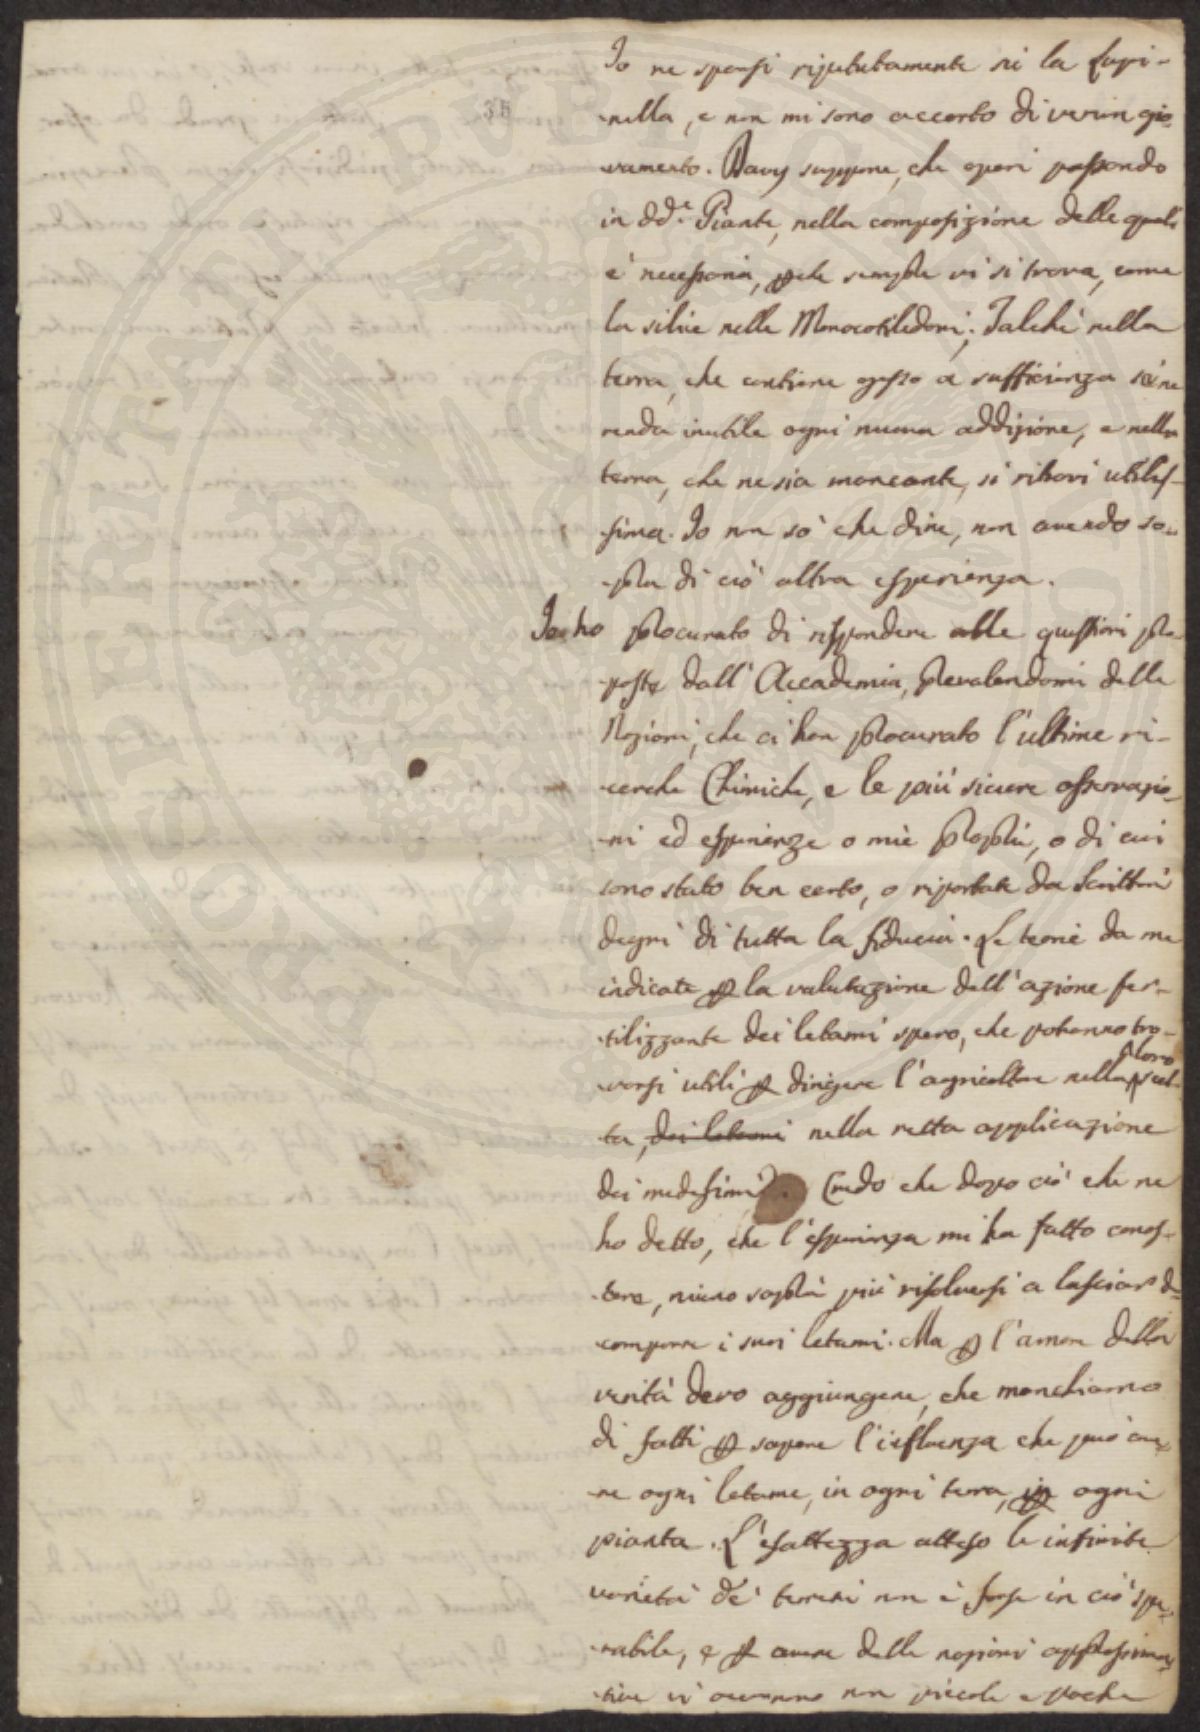 Io ne sparsi riputatamente su la Lupi-
-nella, e non mi sono accorto di verun gio-
-vamento. Davy suppone, che operi passando
in dde Piante, nella composizione delle quali
è necessaria, pche sempre vi si trova, come
la silice nelle Monocotiledoni; Talchè nella
terra, che contiene gesso a sufficienza si ne
renda inutile ogni nuova addizione, e nella
terra, che ne sia mancante, si ritrovi utilis-
-sima. Io non sò che dire, non avendo so-
-pra di ciò altra esperienza.
Io ho procurato di rispondere alle questioni pro
-poste dall'Accademia, prevalendomi delle
Nozioni, che ci han procurato l'ultime ri-
-cerche Chimiche, e le più sicure osservazio-
-ni ed esperienze o mie proprie, o di cui
sono stato ben certo, o riportate da Scrittori
degni di tutta la fiducia. Le teorie da me
indicate p la valutazione dell'azione fer-
-tilizzante dei letami spero, che potranno tro-
-varsi utili p dirigere l'agricoltore nella loro scel-
-ta, dei letami nella retta applicazione
dei medesimi. Credo che dopo ciò che ne
ho detto, che l'esperienza mi ha fatto conos-
-cere, niuno saprà più risolversi a lasciar de-
-comporre i suoi letami. Ma p l'amore della
verità devo aggiungere, che manchiamo
di fatti p sapere l'influenza che può ave-
-re ogni letame, in ogni terra, p ogni
pianta. L'esattezza atteso le infinite
varietà de' terreni non è forse in ciò spe-
-rabile, e p avere delle nozioni approssima-
-tive vi occorrono non piccole e poche